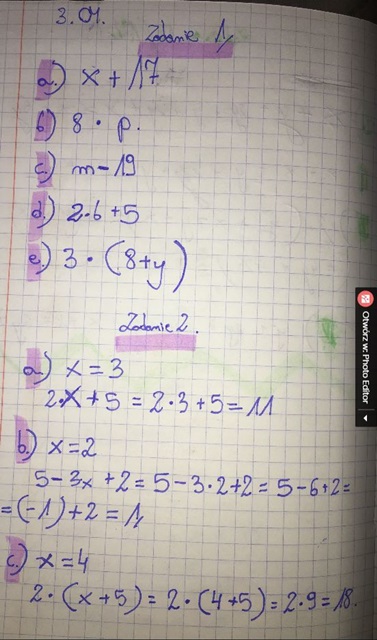 3.04.
Zadanie 1,
a.) x + 17
b) 8 · p.
c.) m - 19
d.) 2·b + 5
e.) 3 · (8+y)
Zadanie 2.
a.) x = 3
2·x + 5 = 2·3 + 5 = 11
b.) x = 2
5 - 3x + 2 = 5 - 3·2 + 2 = 5 - 6 + 2 =
= (-1) + 2 = 1,
c.) x = 4
2·(x + 5) = 2·(4+5) = 2·9 = 18.
Otwórz w: Photo Editor